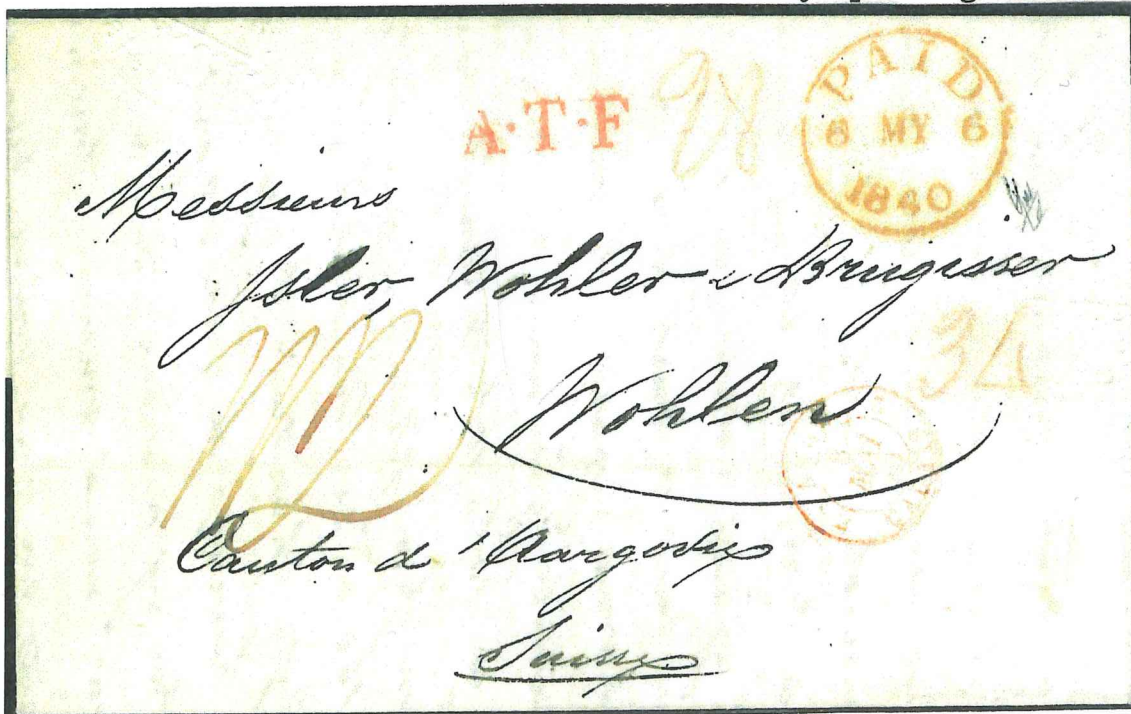 A·T·F
PAID
6 MY 6
1840
Messieurs
Isler, Wohler & Brugisser
34
Wohlen
Canton d'Aargovie
Suisse